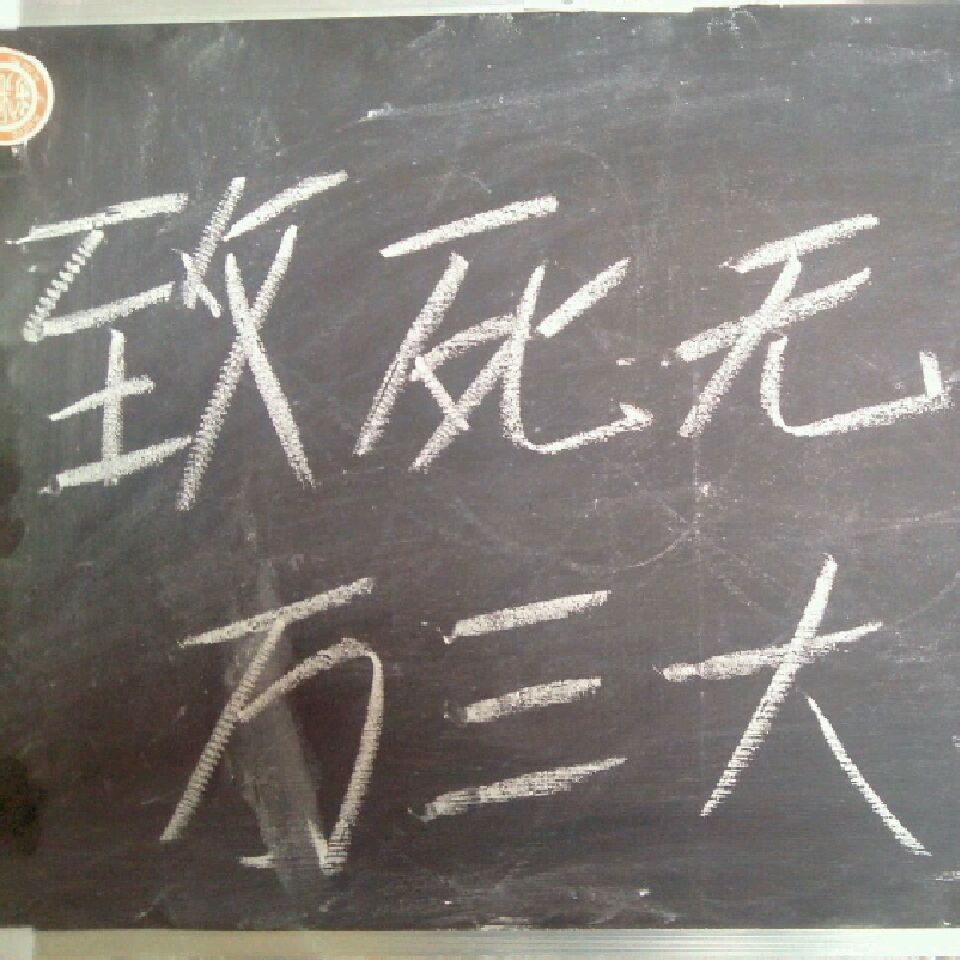 致死无
万三大